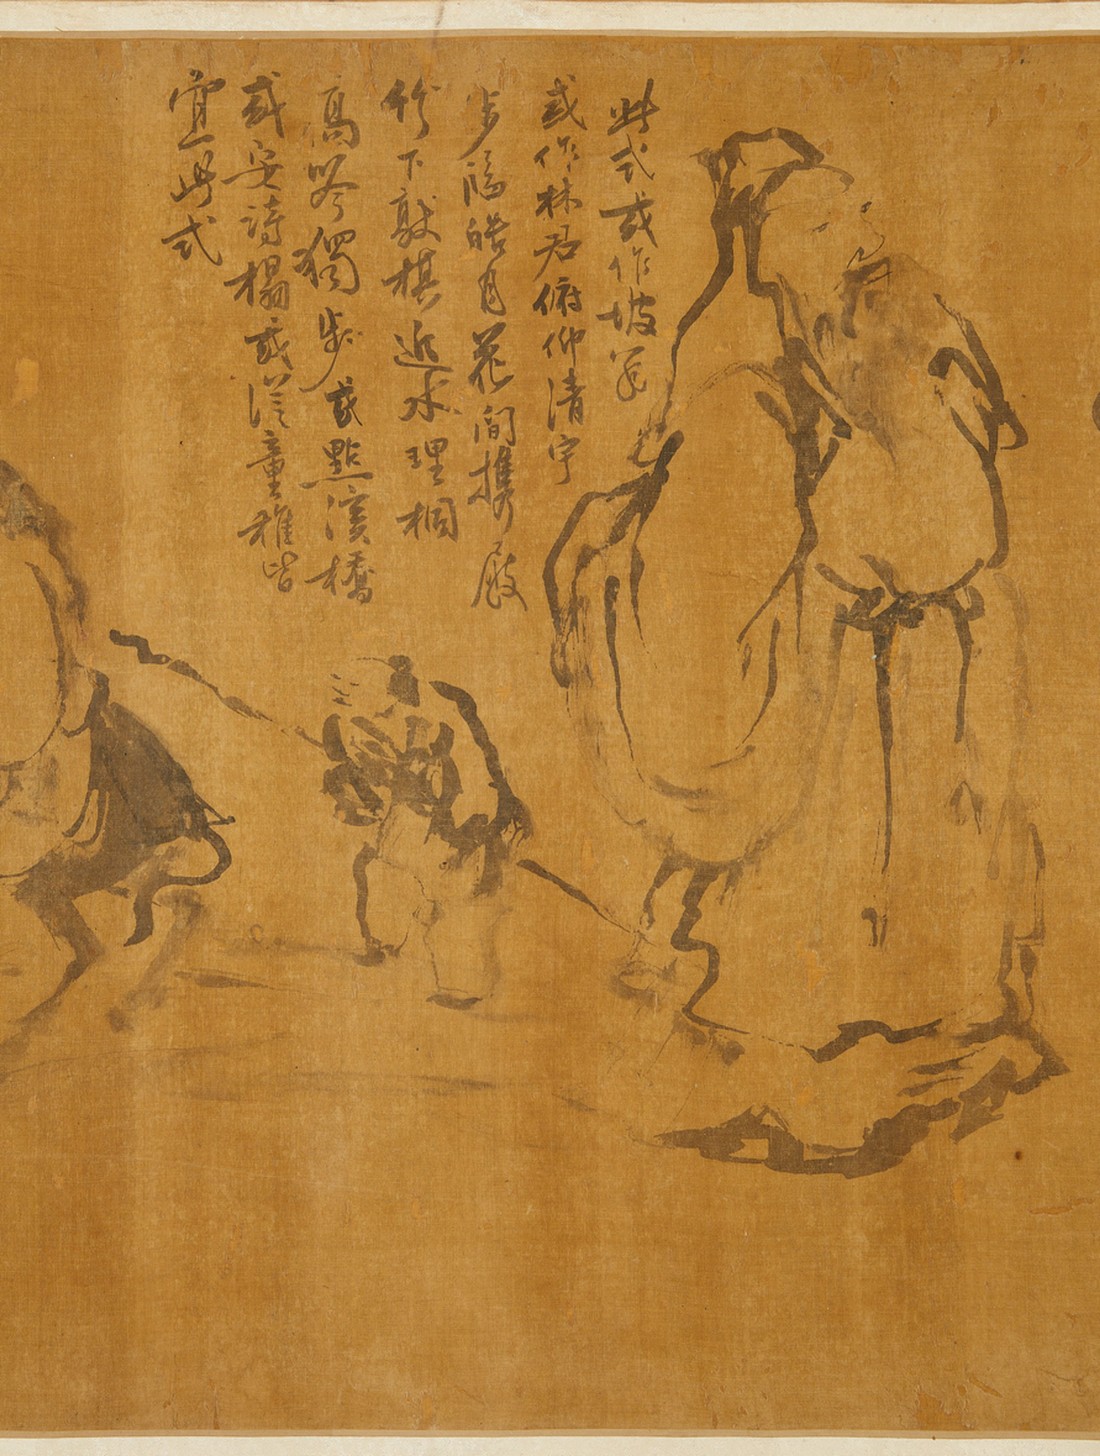 此式或作坡翁
或作林君俯仰清宇
步臨皓月花間携屐
竹下敲棋近水理桐
高吟獨步或點溪橋
或安詩榻或從童稚皆
宜此式